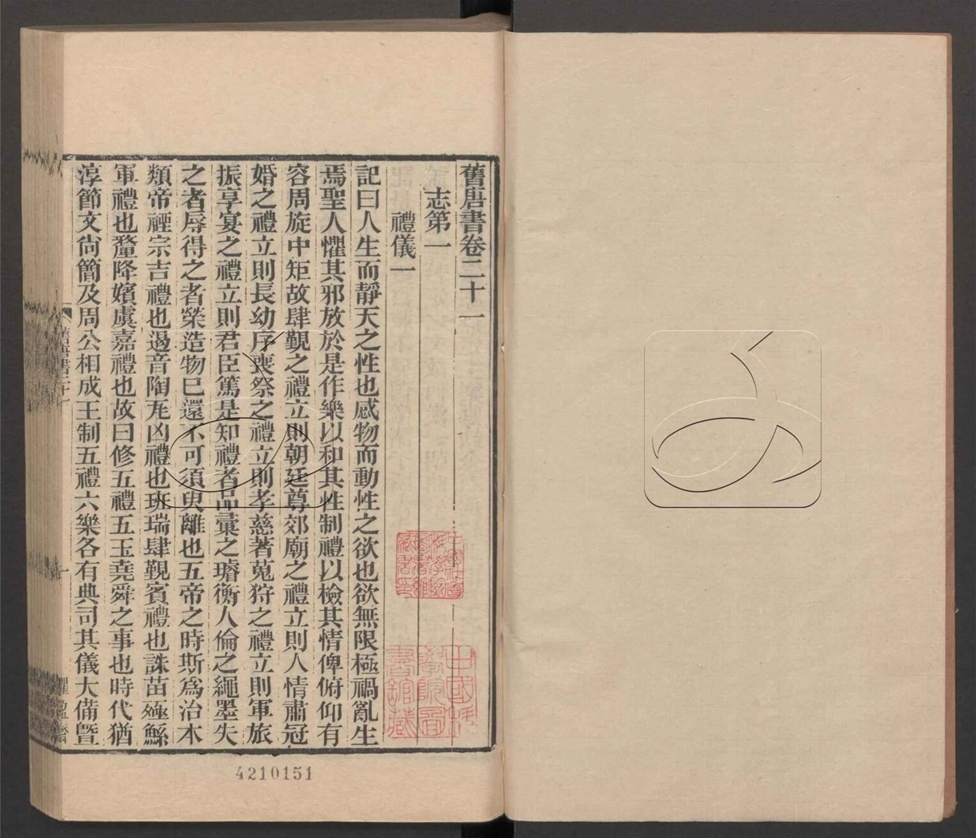 舊唐書卷二十一
志第一
禮儀一
記曰人生而靜天之性也感物而動性之欲也欲無限極禍亂生
焉聖人懼其邪放於是作樂以和其性制禮以檢其情俾俯仰有
容周旋中矩故肆覲之禮立則朝廷尊郊廟之禮立則人情肅冠
婚之禮立則長幼序喪祭之禮立則孝慈著蒐狩之禮立則軍旅
振享宴之禮立則君臣篤是知禮者品彙之璿衡人倫之繩墨失
之者辱得之者榮造物已還不可須臾離也五帝之時斯為治本
類帝禋宗吉禮也遏音陶匏凶禮也班瑞肆覲賓禮也誅苗殛鯀
軍禮也釐降嬪虞嘉禮也故曰修五禮五玉堯舜之事也時代猶
淳節文尚簡及周公相成王制五禮六樂各有典司其儀大備暨
中國科
學院圖
書館藏
4210151